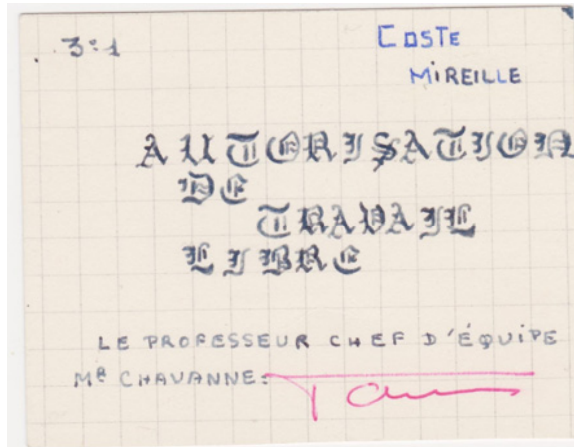 3:1
COSTE
MIREILLE
AUTORISATION
DE
TRAVAIL
LIBRE
LE PROFESSEUR CHEF D'ÉQUIPE
MR CHAVANNE: